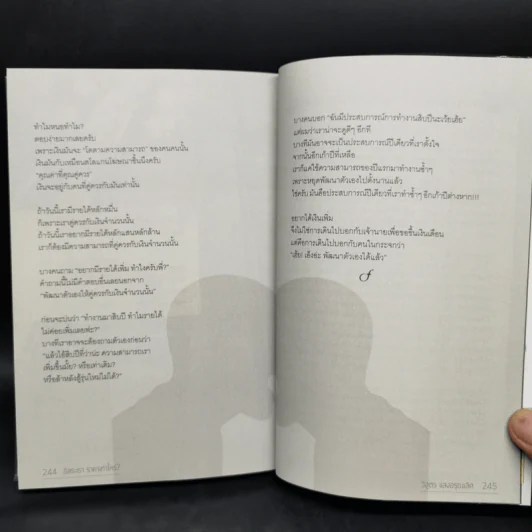 ทำไมหนอทำไม?
ตอบง่ายมากเลยครับ
เพราะเงินมันจะ "โตตามความสามารถ" ของคนคนนั้น
เงินมันก็เหมือนสโลแกนโฆษณาชิ้นนึงครับ
"คุณค่าที่คุณคู่ควร"
เงินจะอยู่กับคนที่คู่ควรกับมันเท่านั้น
ถ้าวันนี้เรามีรายได้หลักหมื่น
ก็เพราะเราคู่ควรกับเงินจำนวนนั้น
ถ้าวันนี้เราอยากมีรายได้หลักแสนหลักล้าน
เราก็ต้องมีความสามารถที่คู่ควรกับเงินจำนวนนั้น
บางคนถาม "อยากมีรายได้เพิ่ม ทำไงครับพี่?"
คำถามนี้ไม่มีคำตอบอื่นเลยนอกจาก
"พัฒนาตัวเองให้คู่ควรกับเงินจำนวนนั้น"
ก่อนจะบ่นว่า "ทำงานมาสิบปี ทำไมรายได้
ไม่ค่อยเพิ่มเลยฟะ?"
บางทีเราอาจจะต้องถามตัวเองก่อนว่า
"แล้วไอ้สิบปีที่ว่าน่ะ ความสามารถเรา
เพิ่มขึ้นมั้ย? หรือเท่าเดิม?
หรือล้าหลังสู้รุ่นใหม่ไม่ได้?"
244
บางคนบอก "ฉันมีประสบการณ์การทำงานสิบปีนะเว้ยเฮ้ย"
แต่ผมว่าเราน่าจะดูดีๆ อีกที
บางทีมันอาจจะเป็นประสบการณ์ปีเดียวที่เราตั้งใจ
จากนั้นอีกเก้าปีที่เหลือ
เราก็แค่ใช้ความสามารถของปีแรกมาทำงานซ้ำๆ
เพราะหยุดพัฒนาตัวเองไปตั้งนานแล้ว
ใช่ครับ มันคือประสบการณ์ปีเดียวที่เราทำซ้ำๆ อีกเก้าปีต่างหาก!!!
อยากได้เงินเพิ่ม
จึงไม่ใช่การเดินไปบอกกับเจ้านายเพื่อขอขึ้นเงินเดือน
แต่คือการเดินไปบอกกับคนในกระจกว่า
"เฮ้ย! เอ็งช่ะ พัฒนาตัวเองได้แล้ว"
245